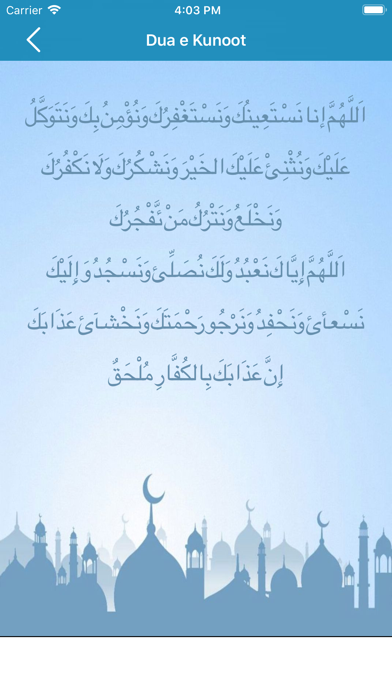 Carrier 4:03 PM
Dua e Kunoot
اَللَّهُمَّ إنا نَسْتَعِينُكَ وَنَسْتَغْفِرُكَ وَنُؤْمِنُ بِكَ وَنَتَوَكَّلُ
عَلَيْكَ وَنُثْنِئْ عَلَيْكَ الخَيْرَ وَنَشْكُرُكَ وَلَا نَكْفُرُكَ
وَنَخْلَعُ وَنَتْرُكُ مَنْ ئَّفْجُرُكَ
اَللَّهُمَّ إِيَّاكَ نَعْبُدُ وَلَكَ نُصَلِّئْ وَنَسْجُدُ وَإِلَيْكَ
نَسْعأَئْ وَنَحْفِدُ وَنَرْجُو رَحْمَتَكَ وَنَخْشآئْ عَذَابَكَ
إِنَّ عَذَابَكَ بِالكُفَّارِ مُلْحَقٌ